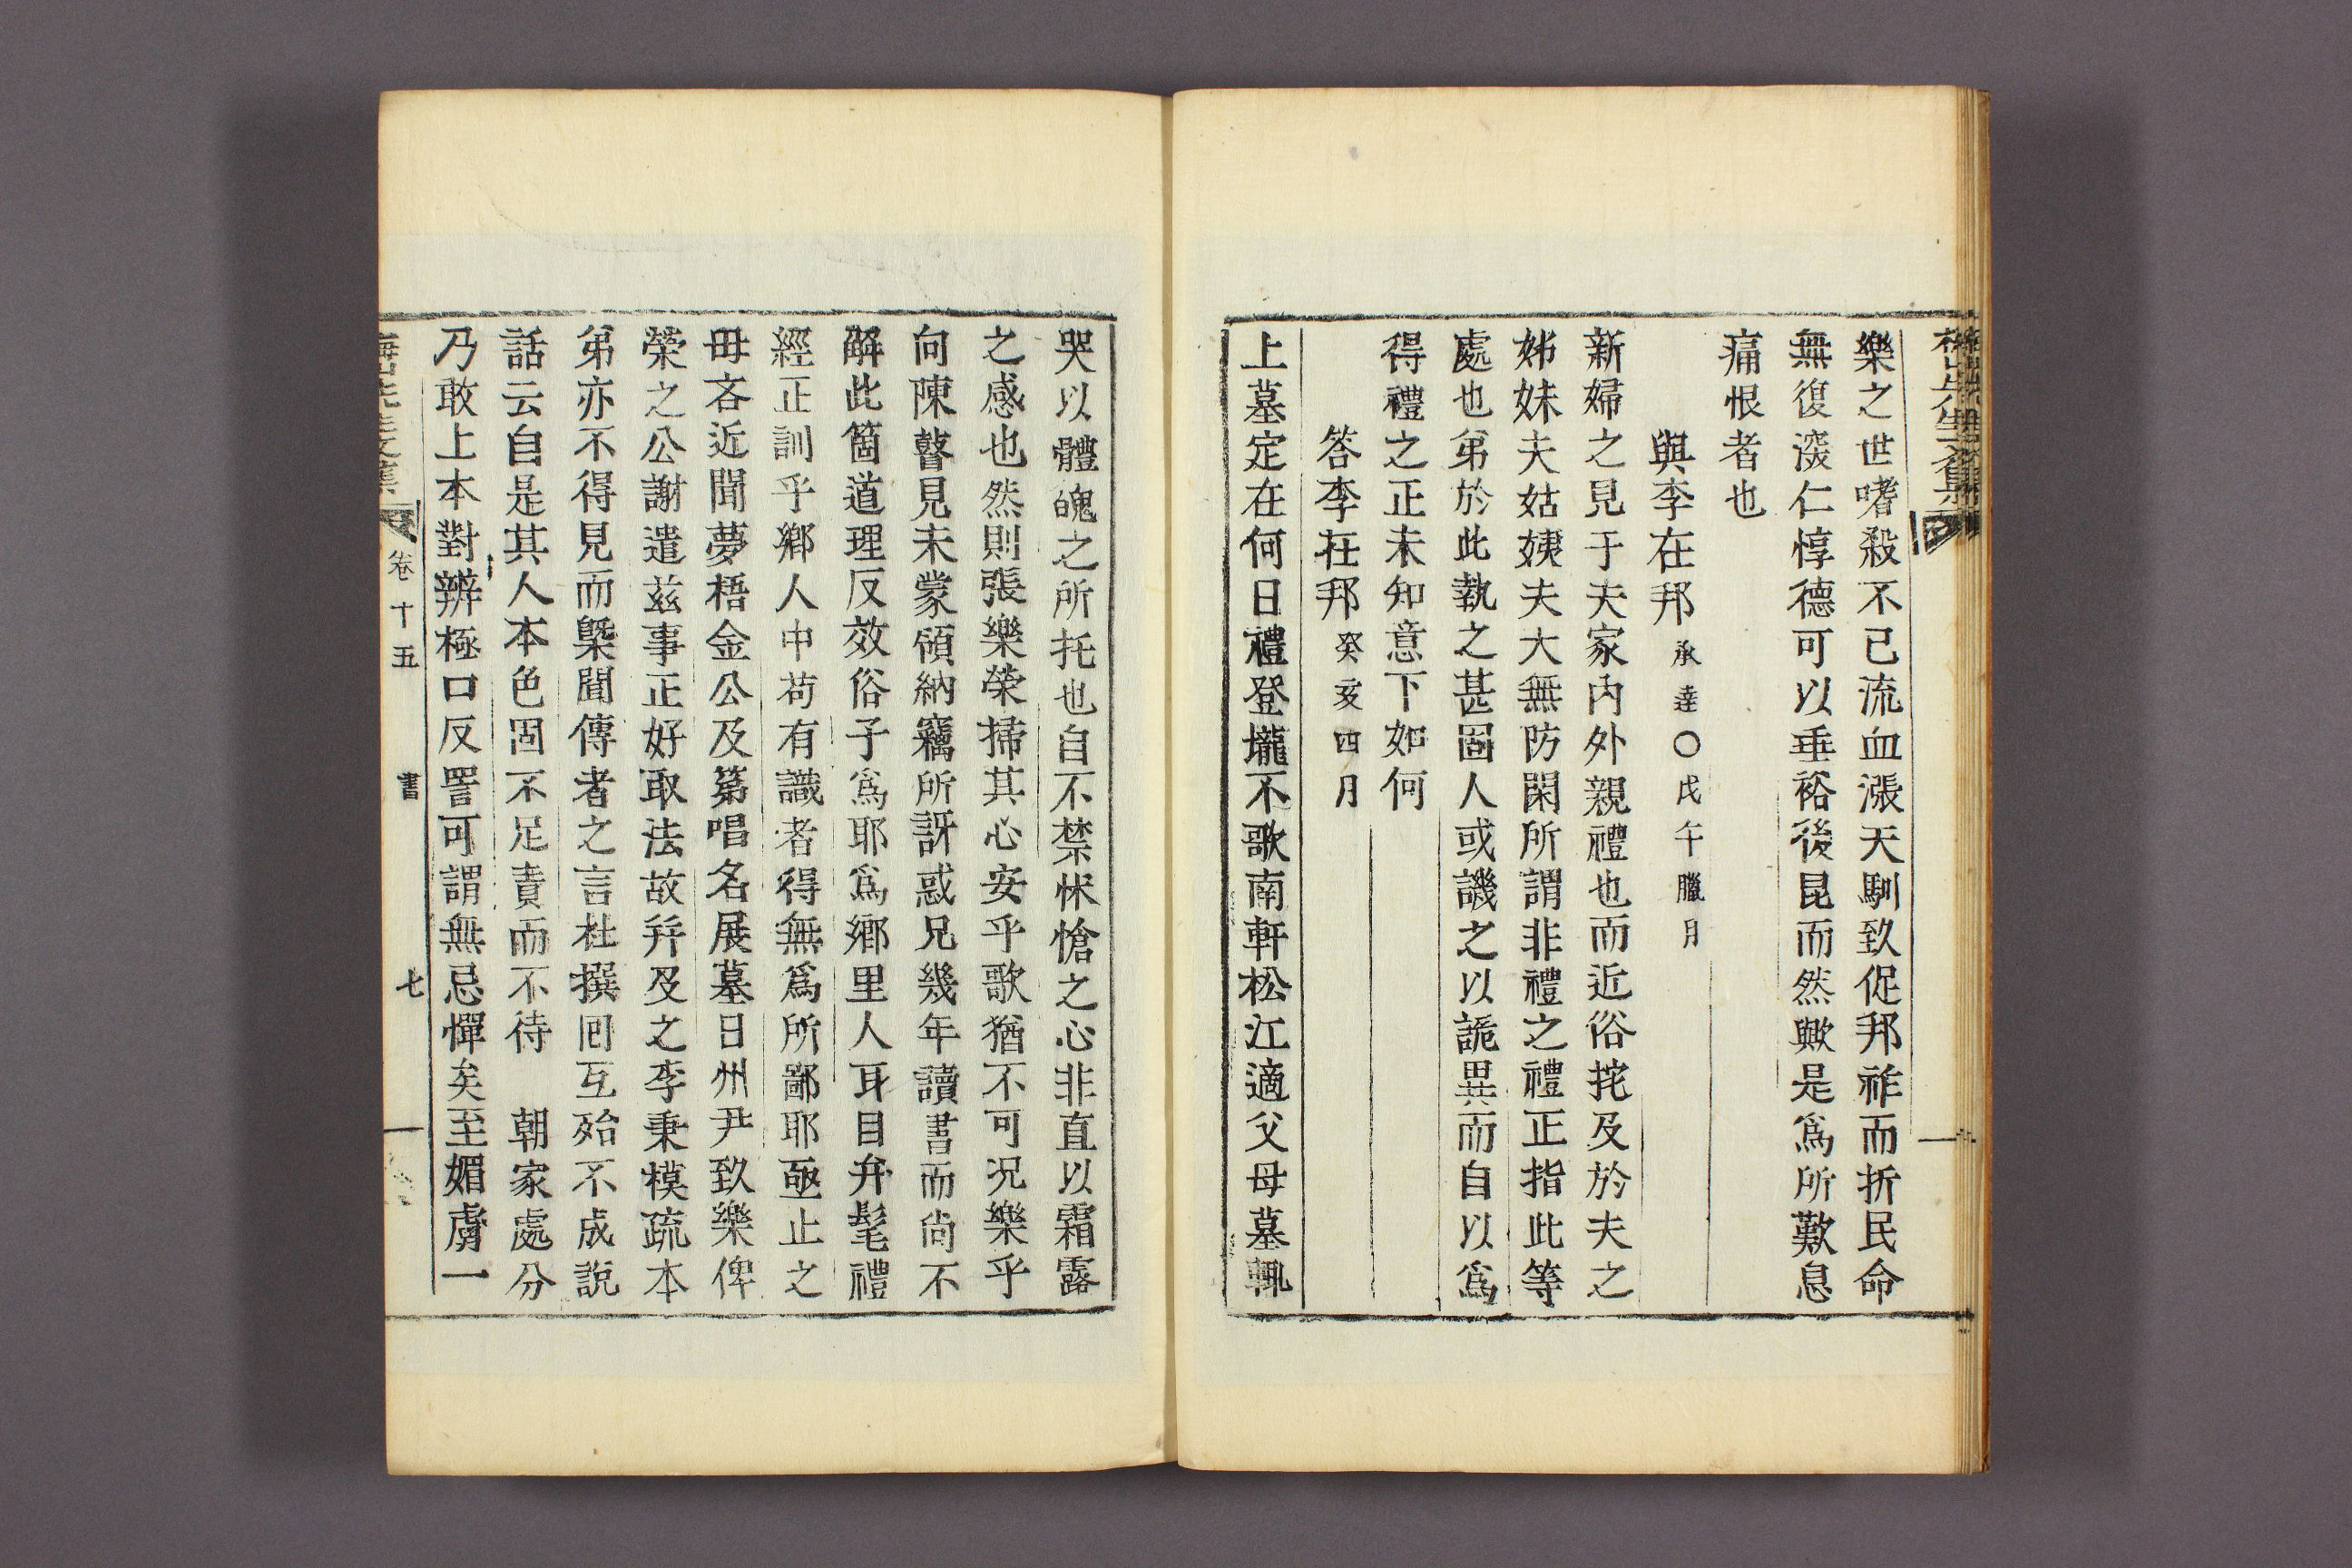 樂之世嗜殺不已流血漲天馴致促邦祚而折民命
無復深仁惇德可以垂裕後昆而然歟是爲所歎息
痛恨者也
與李在邦 承逵○戊午臘月
新婦之見于夫家內外親禮也而近俗挓及於夫之
姊妹夫姑姨夫大無防閑所謂非禮之禮正指此等
處也弟於此執之甚固人或譏之以詭異而自以爲
得禮之正未知意下如何
答李在邦 癸亥四月
上墓定在何日禮登壠不歌南軒松江適父母墓輒
哭以體魄之所托也自不禁怵愴之心非直以霜露
之感也然則張樂榮掃其心安乎歌猶不可况樂乎
向陳瞽見未蒙領納竊所訝惑兄幾年讀書而尙不
解此箇道理反效俗子爲耶爲鄕里人耳目弁髦禮
經正訓乎鄕人中苟有識者得無爲所鄙耶亟止之
毋吝近聞夢梧金公及第唱名展墓日州尹致樂俾
榮之公謝遣玆事正好取法故幷及之李秉模疏本
弟亦不得見而槩聞傳者之言杜撰囘互殆不成說
話云自是其人本色固不足責而不待 朝家處分
乃敢上本對辨極口反詈可謂無忌憚矣至媚虜一
梅山先生文集 卷十五 書 七